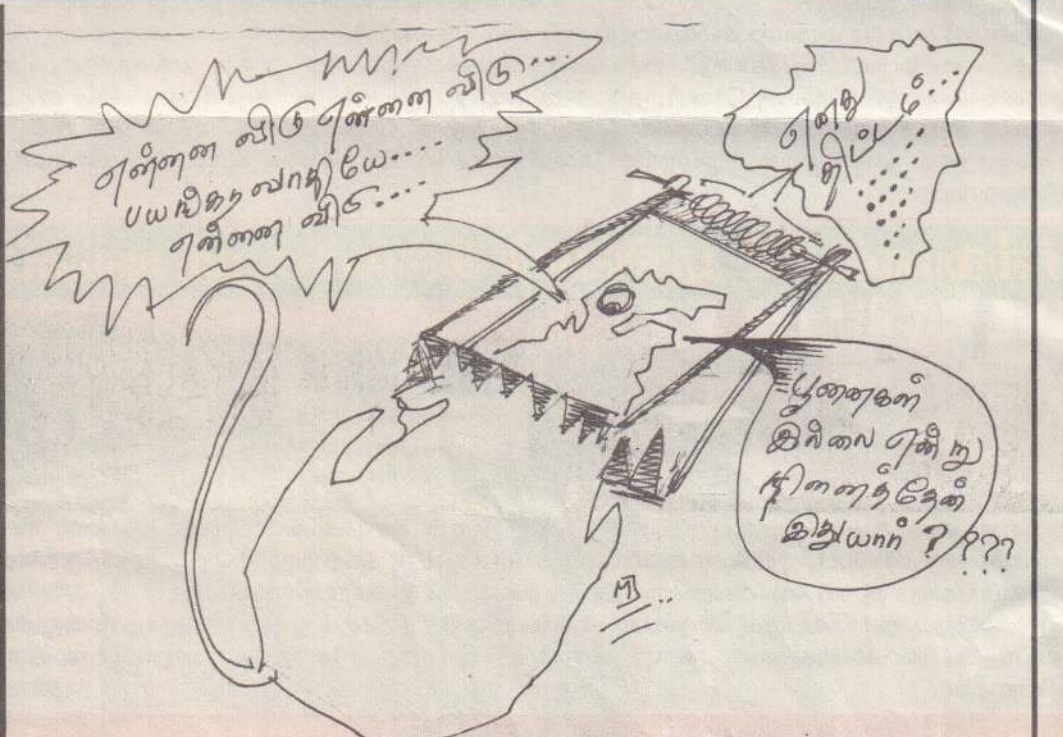 என்னை விடு என்னை விடு...
பயங்கர வாதியே....
என்னை விடு...
எனது
பூனைகள்
இல்லை என்று
நினைத்தேன்
இது யார் ? ???